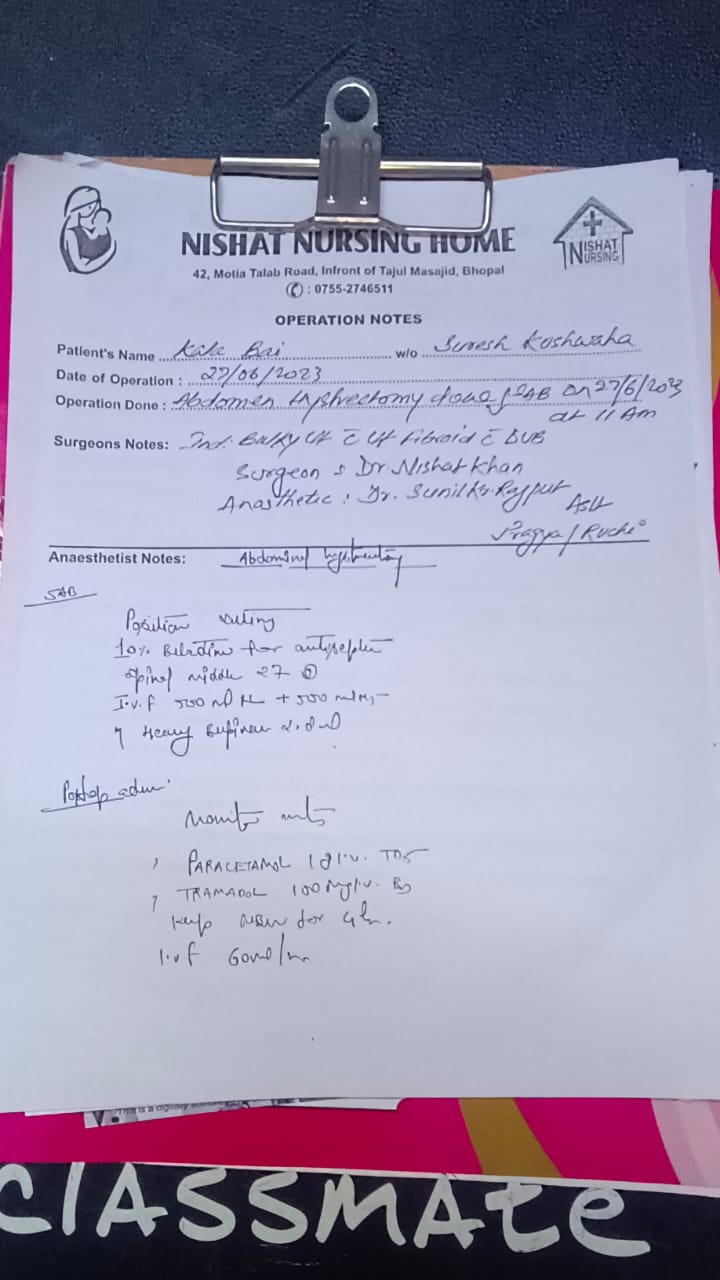 NISHAT NURSING HOME
NISHAT
NURSING
42, Motia Talab Road, Infront of Tajul Masajid, Bhopal
: 0755-2746511
OPERATION NOTES
Patient's Name Kala Bai w/o Suresh Koshwaha
Date of Operation : 27/06/2023
Operation Done : Abdomen Hystrectomy done SAB on 27/6/2023
at 11 Am
Surgeons Notes: Ind: Bulky Ut c̄ Ut fibroid c̄ DUB
Surgeon : Dr. Nishat Khan
Anasthetic : Dr. Sunil Kr. Rajput
Pragya / Ruchi
Anaesthetist Notes: Abdominal hysterectomy
SAB
Position sitting
10% Betadine for antiseptic
spinal middle 27
I.V.F 500 ml RL + 500 ml
Heavy 2.8 ml
Postop
Monitor
PARACETAMOL 1g I.V. TDS
TRAMADOL 100mg I.V.
Keep for
I.V.F
This is a digitally
CLASSMATE